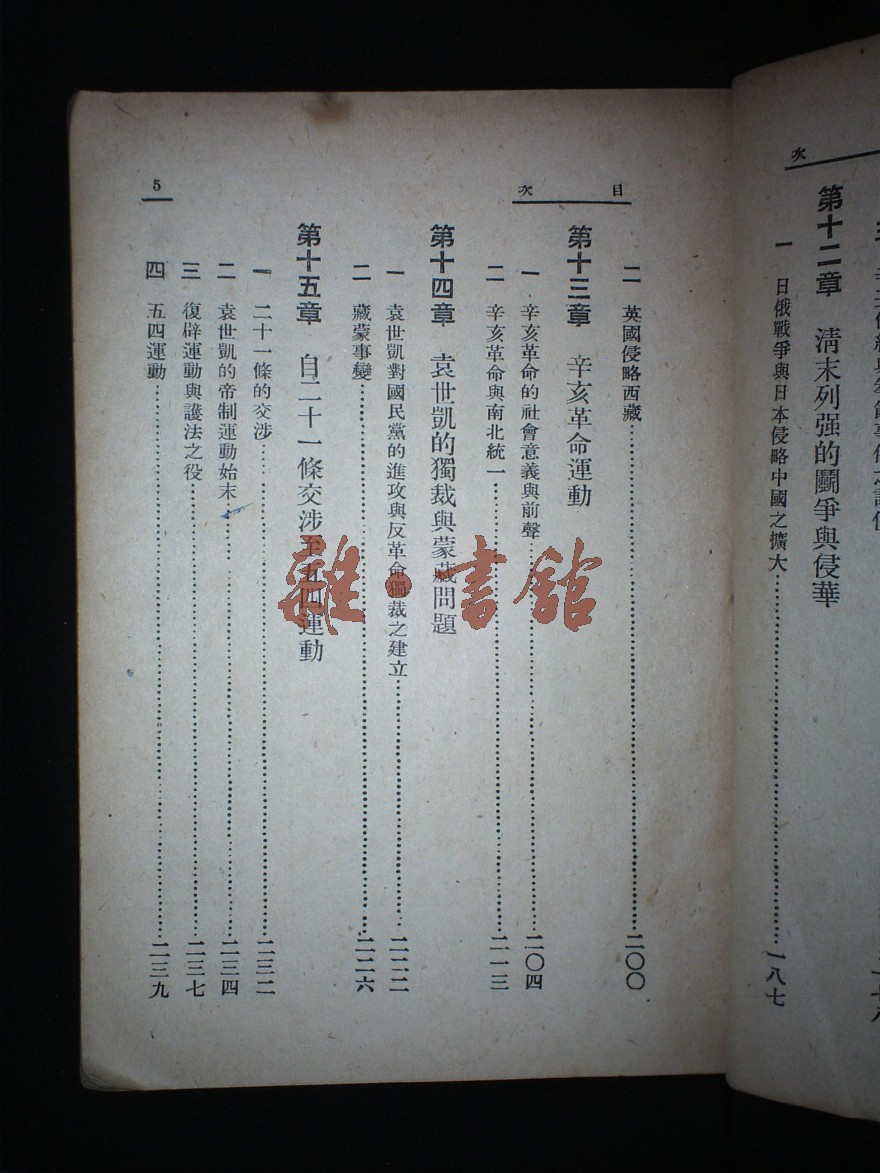 次
第十二章　淸末列强的鬭爭與侵華
一　日俄戰爭與日本侵略中國之擴大…………一八七
目次
二　英國侵略西藏…………二〇〇
第十三章　辛亥革命運動
一　辛亥革命的社會意義與前聲…………二〇四
二　辛亥革命與南北統一…………二一三
第十四章　袁世凱的獨裁與蒙藏問題
一　袁世凱對國民黨的進攻與反革命獨裁之建立…………二二二
二　藏蒙事變…………二二六
第十五章　自二十一條交涉至五四運動
一　二十一條的交涉…………二三二
二　袁世凱的帝制運動始末…………二三四
三　復辟運動與護法之役…………二三七
四　五四運動…………二三九
5
雜·書館